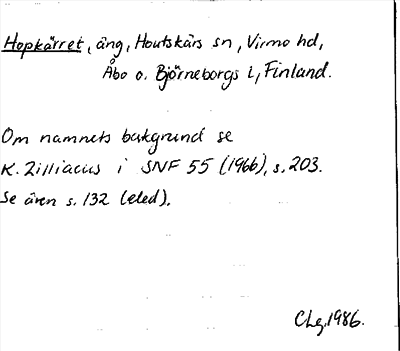 Hopkärret, äng, Houtskärs sn, Virmo hd,
Åbo o. Björneborgs l, Finland.
Om namnets bakgrund se
K. Zilliacus i SNF 55 (1966), s. 203.
Se även s. 132 (eled).
CLg. 1986.